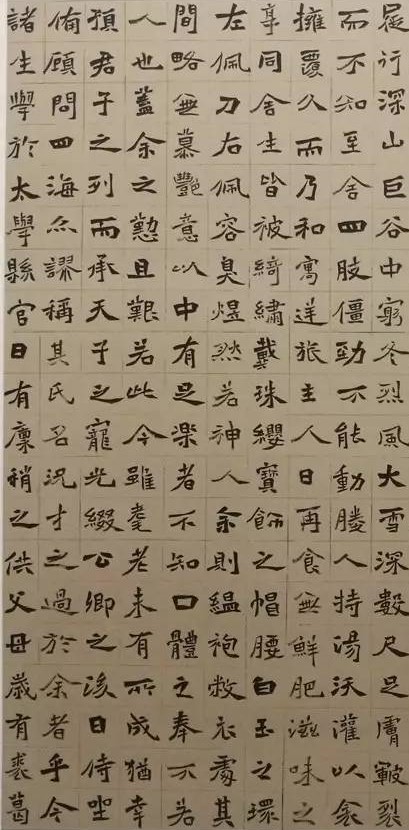 屣行深山巨谷中窮冬烈風大雪深數尺足膚皸裂
而不知至舍四肢僵勁不能動媵人持湯沃灌以衾
擁覆久而乃和寓逆旅主人日再食無鮮肥滋味之
享同舍生皆被綺繡戴珠纓寶飾之帽腰白玉之環
左佩刀右佩容臭煜然若神人余則縕袍敝衣處其
間略無慕艷意以中有足樂者不知口體之奉不若
人也蓋余之懃且艱若此今雖耄老未有所成猶幸
預君子之列而承天子之寵光綴公卿之後日侍坐
備顧問四海亦謬稱其氏名況才之過於余者乎今
諸生學於太學縣官日有廩稍之供父母歲有裘葛